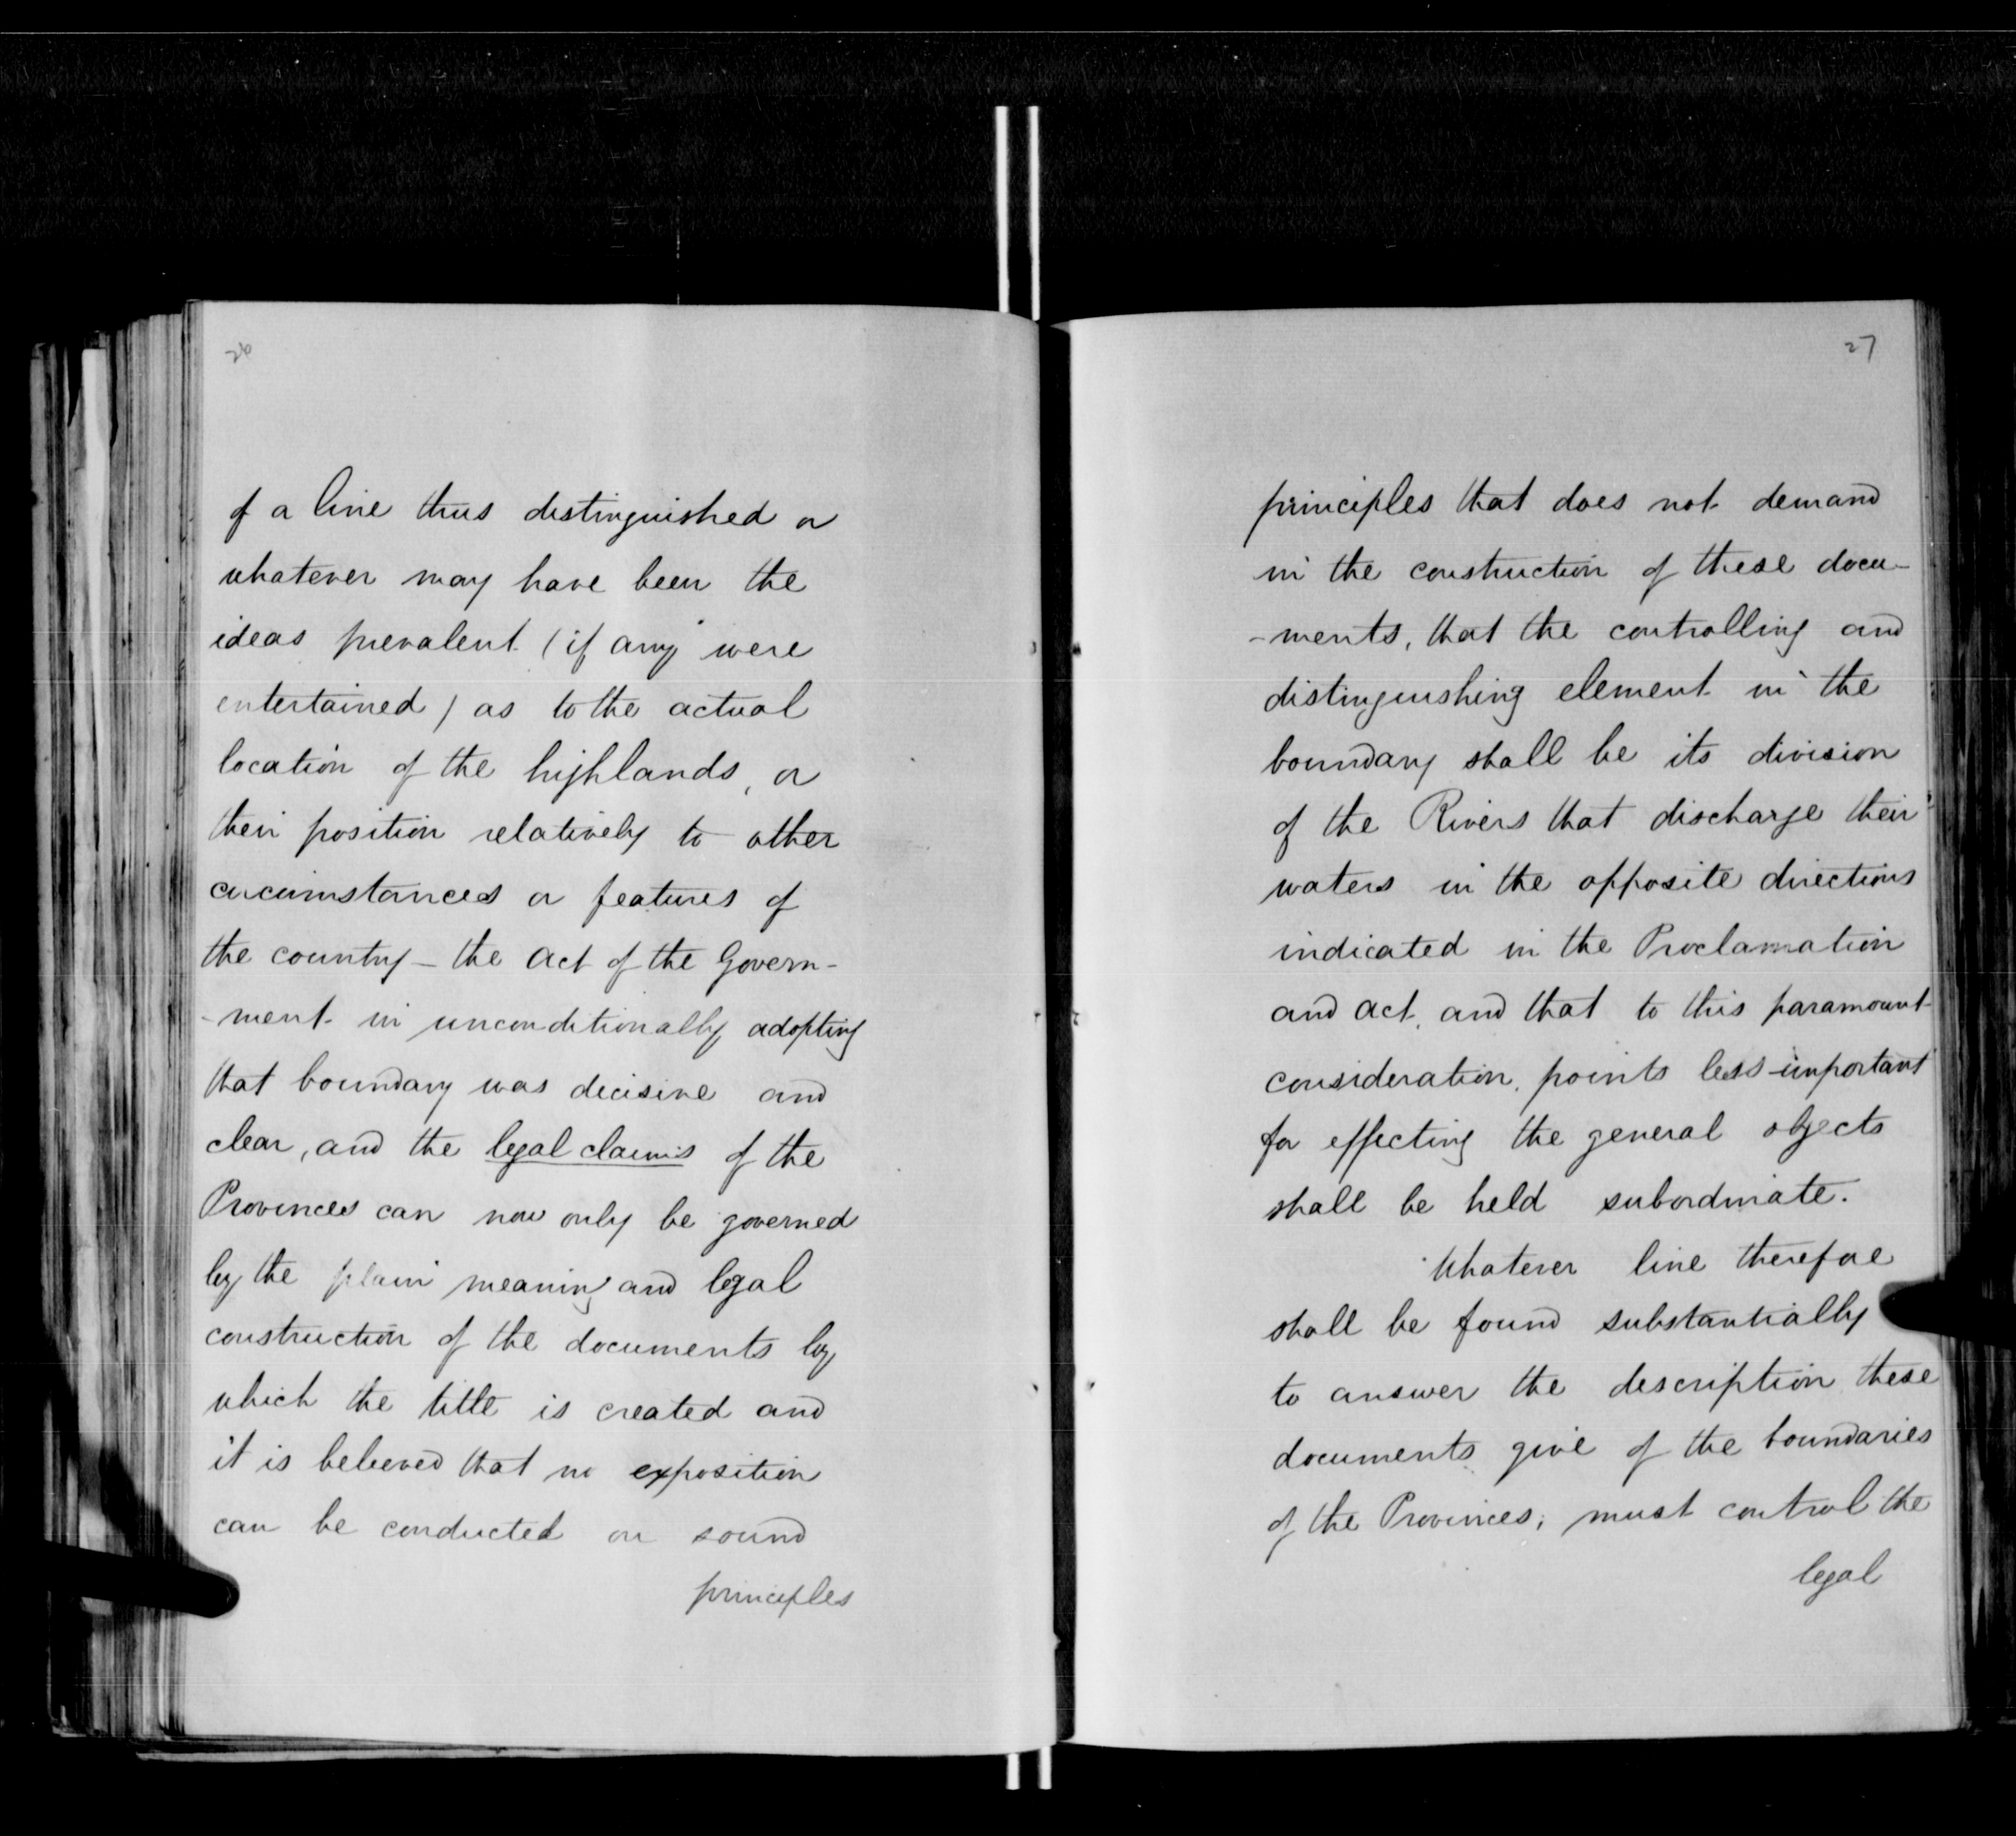 26
of a line thus distinguished or
whatever may have been the
ideas prevalent (if any were
entertained) as to the actual
location of the highlands, or
their position relatively to other
circumstances or features of
the country - the Act of the Govern-
-ment in unconditionally adopting
that boundary was decisive and
clear, and the legal claims of the
Provinces can now only be governed
by the plain meaning and legal
construction of the documents by
which the title is created and
it is believed that no exposition
can be conducted on sound
principles
27
principles that does not demand
in the construction of these docu-
-ments, that the controlling and
distinguishing element in the
boundary shall be its division
of the Rivers that discharge their
waters in the opposite directions
indicated in the Proclamation
and Act, and that to this paramount
consideration, points less important
for effecting the general objects
shall be held subordinate.
Whatever line therefore
shall be found substantially
to answer the description these
documents give of the boundaries
of the Provinces, must control the
legal